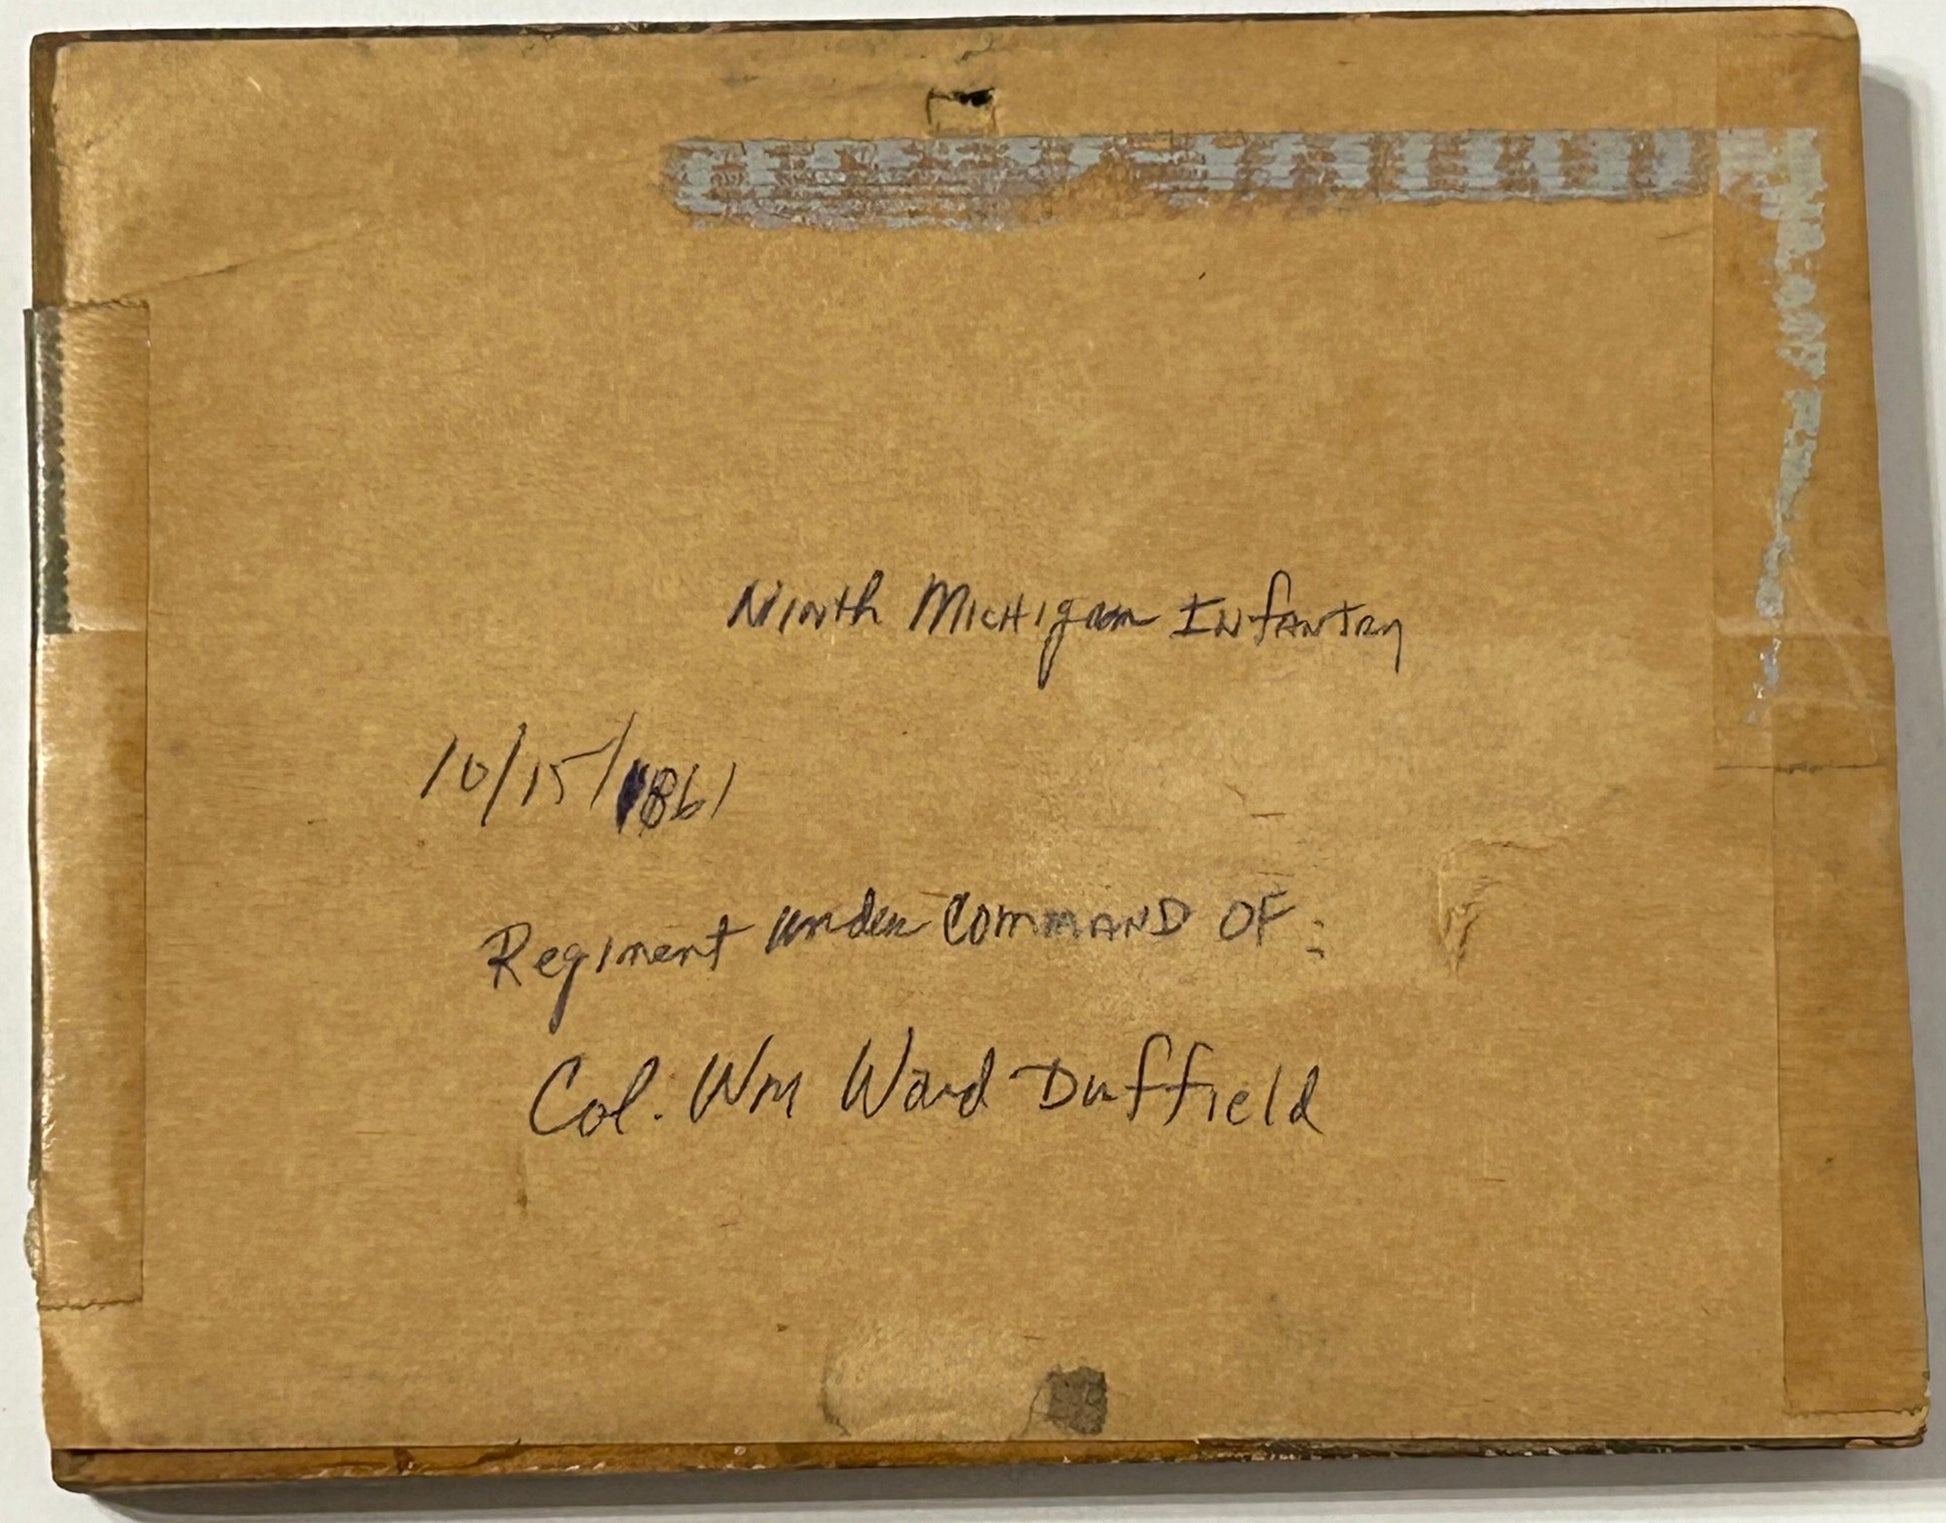 Ninth Michigan Infantry
10/15/1861
Regiment under Command OF:
Col. Wm Ward Duffield